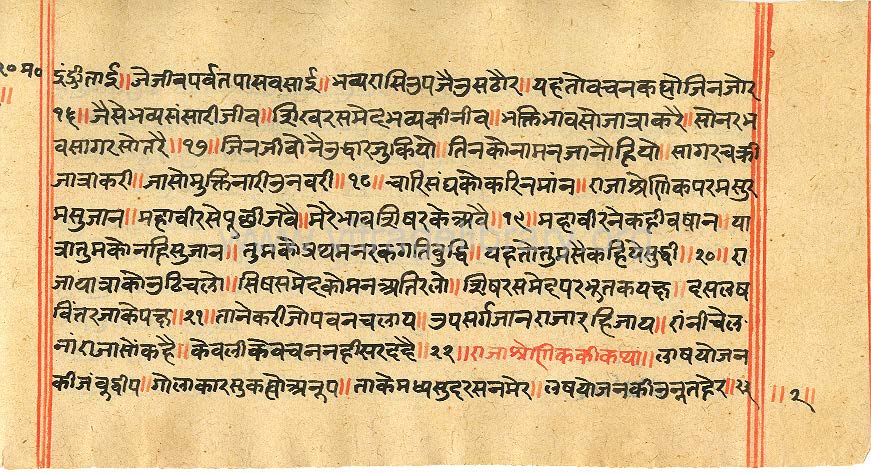 २० म० द्रंद्रीताई॥ जेजीवपर्वतपासवसाई॥ भव्यरासिउपजैउसठौर॥ यहतोवचनकह्योजिनजोर
॥ १६॥ जैसेभव्यसंसारीजीव॥ शिखरसमेदभव्यकीनीव॥ भक्तिभावसोजात्राकरै॥ सोनरभ
वसागरसोतरै॥ १७॥ जिनजीवोनैउद्दारजुकियो॥ तिनकोनामनजानौहियो॥ सागरचक्री
जात्राकरी॥ जासोमुक्तिनारीउनवरी॥ १८॥ चारिसंघकोकरिनमांन॥ राजाश्रेणिकपरमसुर
मसुजान॥ महावीरसेपूछीजवै॥ मेरेभावशिषरकेअवै॥ १९॥ महावीरनेकहीवषान॥ या
त्रातुमकोनहिसुजान॥ तुमकोप्रथमनरकगतिवुद्धि॥ यहतोतुमसैकहियसुद्धी॥ २०॥ रा
जायात्राकोउठिचलो॥ सिषसमेदकोमनअतिरलो॥ शिषरसमेदपरभूतकयक्ष॥ दसलष
विंतरजाकेपक्ष॥ २१॥ तानेकरीजोपवनचलाय॥ उपसर्गजानराजारहिजाय॥ रांनीचेल
नांराजासोंकहै॥ केवलीकेवचननहीसरदहै॥ २२॥ राजाश्रेणिककीकथा॥ लाषयोजन
कीजंवुद्वीप॥ गोलाकारसुकह्योअनूप॥ ताकेमध्यसुदरसनमेर॥ लषयोजनकीउनूतहेर॥ २३
॥ २॥